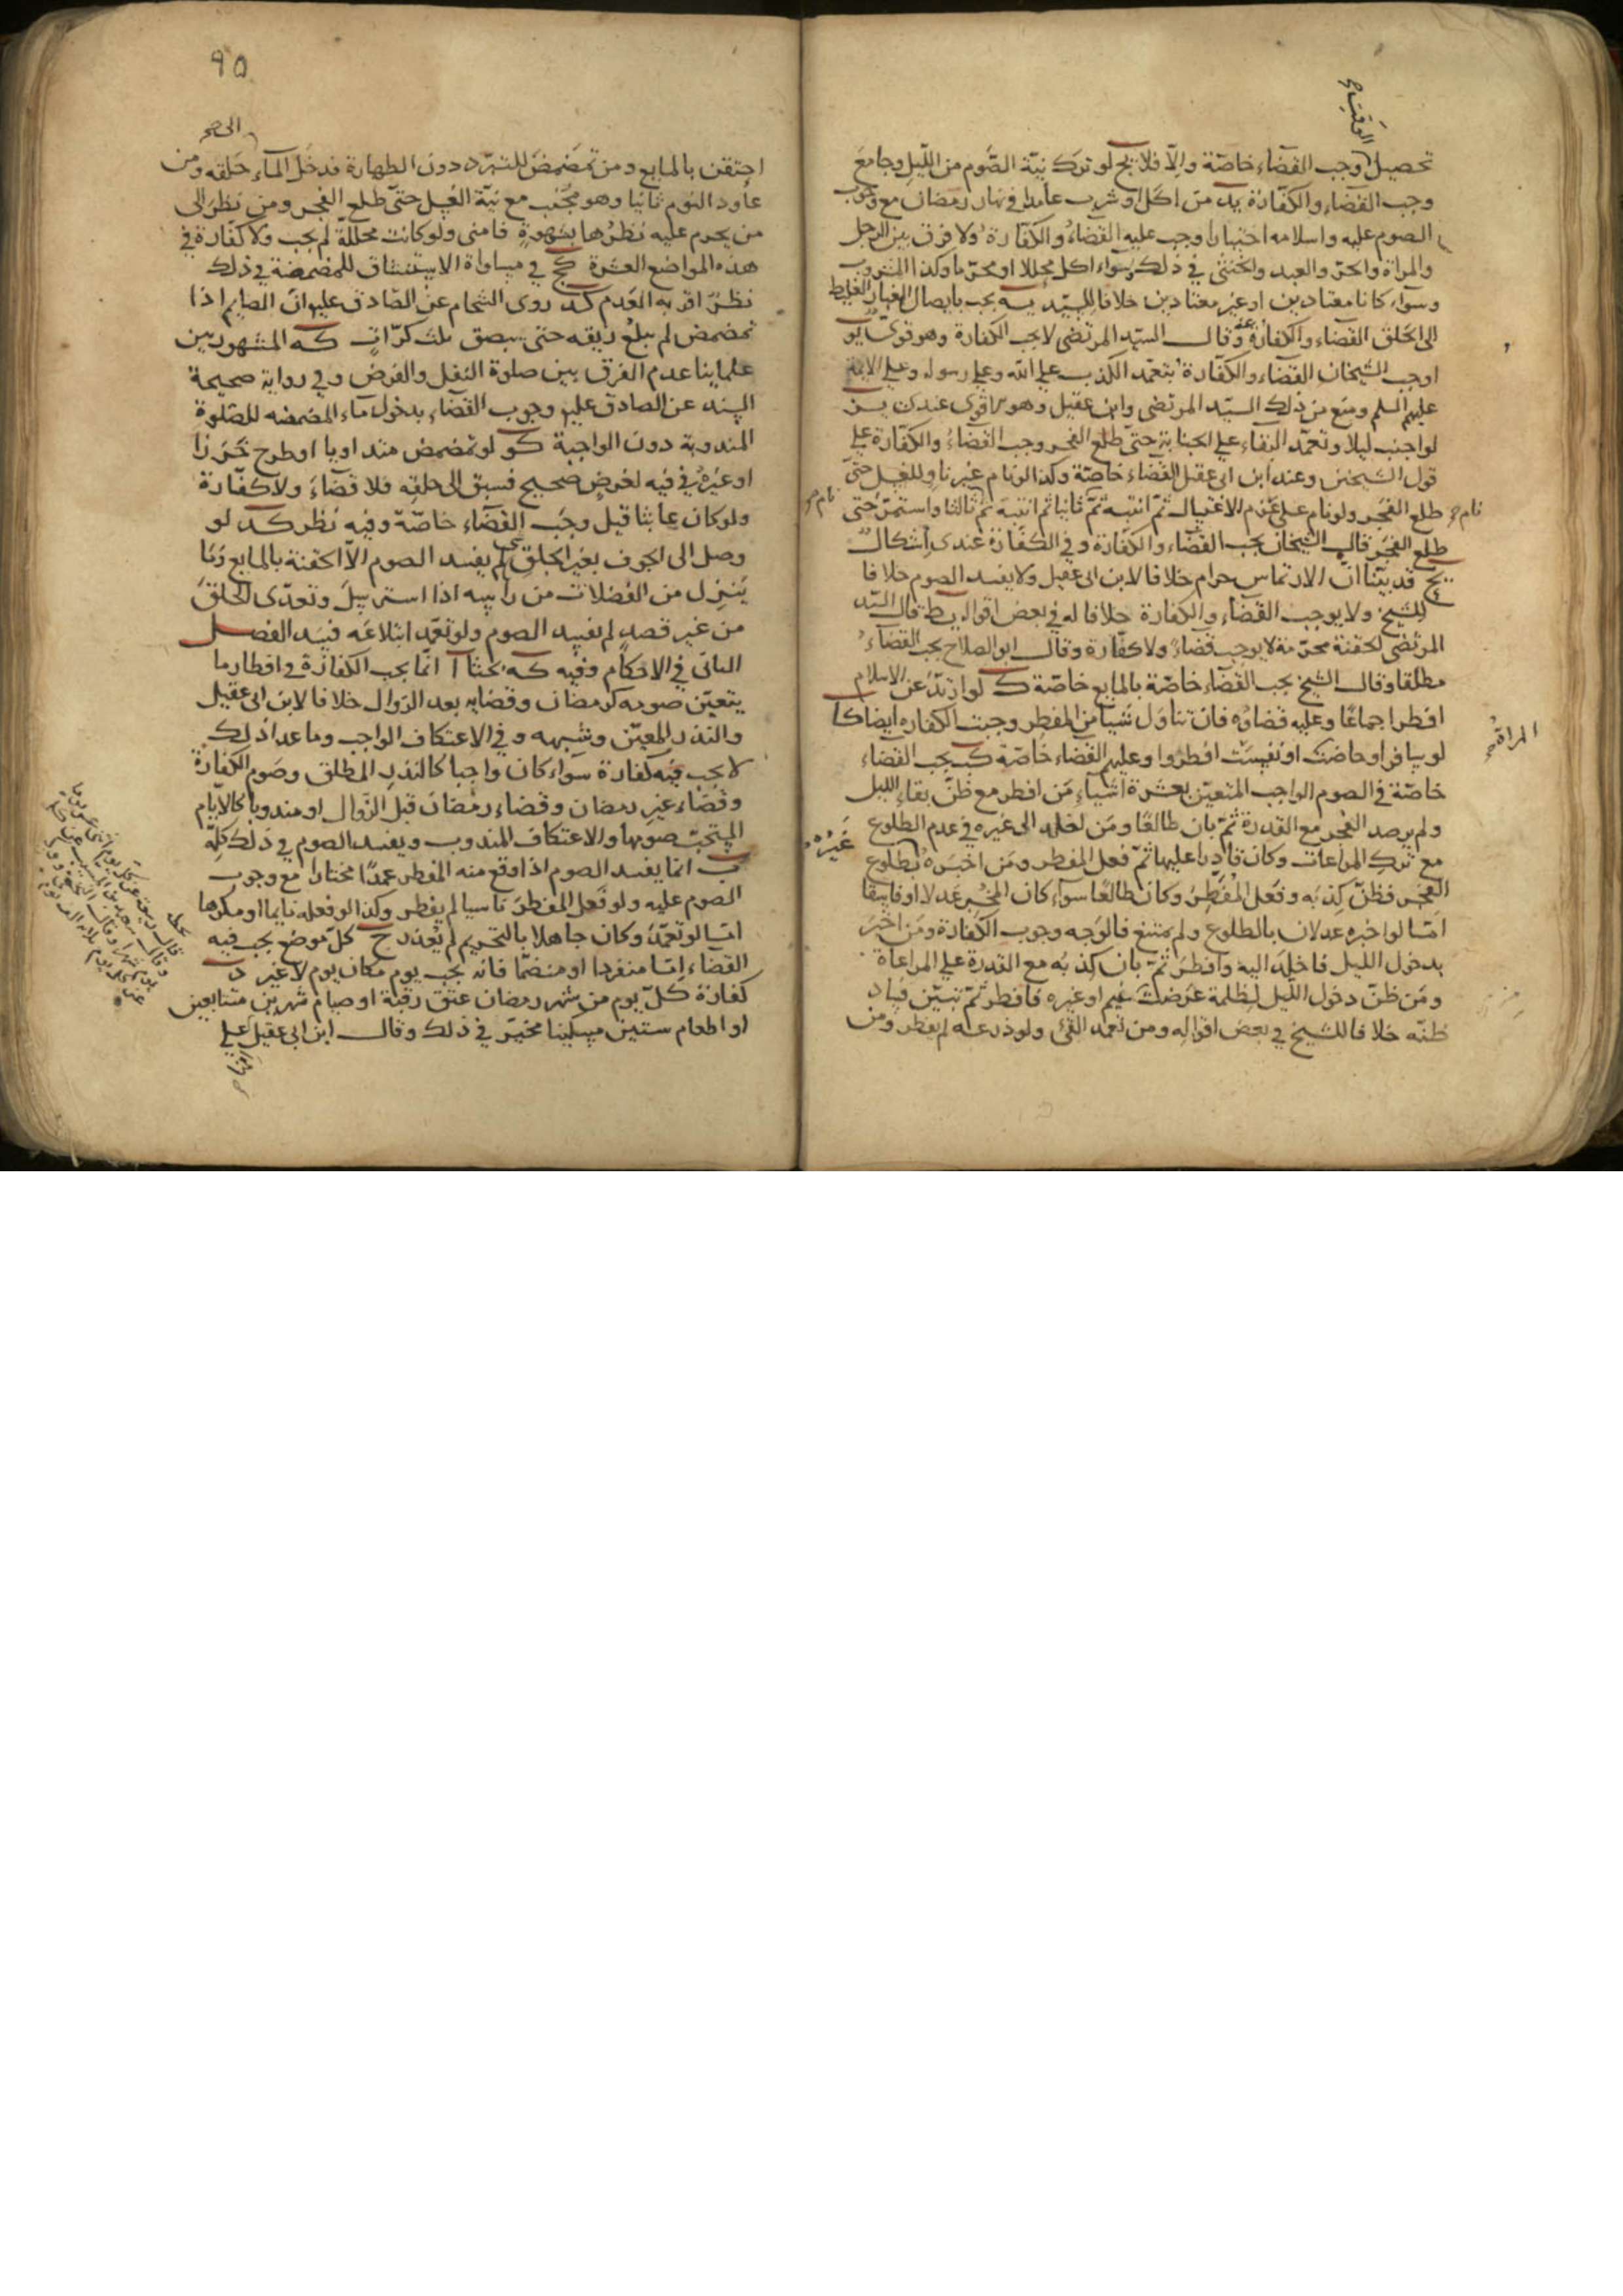 تحصيل وجب القضاء خاصّة والّا فلا يج لو ترك نيّة الصّوم من اللّيل وجامعَ
وجب القضاء والكفّارة يد من اكل او شرب عامدا في نهار رمضان مع وجوب
الصوم عليه واسلامه اختيارا وجب عليه القضاءُ والكفّارة ولا فرق بين الرجل
والمراة والحرّ والعبد والخنثى في ذلك وسواء اكل محللا او محرّما وكذا المشروب
وسوآء كانا معتادين او غير معتادين خلافا للسيّد يه يجب بايصال الغبار الغليظ
الى الحلق القضاء والكفارة وقال السيّد المرتضى لا يجب الكفارة وهو قوى يو
اوجب الشيخان القضاء والكفّارة بتعمّد الكذب على الله وعلى رسوله وعلى الايمة
عليهم السلم ومنع من ذلك السيّد المرتضى وابن عقيل وهو الاقوى عندى يز
لو اجنب ليلا وتعمّد البقاء على الجنابة حتّى طلع الفجر وجب القضاءُ والكفّارة على
قول الشيخين وعند ابن ابى عقيل القضاء خاصّة وكذا لو نام غير ناوٍ للغسل حتّى
طلع الفجر ولو نام على عزم الاغتسال ثمّ انتبه ثمّ ثانيا ثم انتبه ثمّ ثالثا واستمرّ حتى
طلع الفجر قال الشيخان يجب القضاء والكفارة وفي الكفّارة عندى اشكال
يح قد بيّنا انّ الارتماس حرام خلافا لابن ابى عقيل ولا يفسد الصوم خلافا
للشيخ ولا يوجب القضاء والكفارة خلافا له في بعض اقواله يط قال السيّد
المرتضى الحقنة محرّمة لا يوجب قضاءً ولا كفّارة وقال ابو الصلاح يجب القضاءُ
مطلقا وقال الشيخ يجب القضاء خاصّة بالمايع خاصّة ك لو ارتدّ عن الاسلام
افطر اجماعًا وعليه قضاؤه فان تناول شيئا من المفطر وجبت الكفاره ايضا كا
لو سافر او حاضت او نفست افطروا وعليهم القضاء خاصّة كب يجب القضاء
خاصّة في الصوم الواجب المتعيّن بعشرة اشياء من افطر مع ظنّ بقاء الليل
ولم يرصد الفجر مع القدرة ثمّ بان طالعًا ومَن اخلد الى غيره في عدم الطلوع
مع ترك المراعات وكان قادرا عليها ثمّ فعل المفطر ومَن اخبره بطلوع
الفجر فظنّ كذبه وفعل المفطر وكان طالعًا سوآء كان المخبر عدلا او فاسقا
امّا لو اخبره عدلان بالطلوع ولم يمتنع فالوجه وجوب الكفارة ومَن اخبر
بدخول الليل فاخلد اليه وافطر ثمّ بان كذبه مع القدرة على المراعاة
ومَن ظنّ دخول اللّيل لظلمة عرضت غيم او غيره فافطر ثمّ تبيّن فساد
ظنّه خلافا للشيخ في بعض اقواله ومن تعمد القئ ولو ذرعه لم يفطر ومن
نام
نام
المراة
غيره
٩٥
الى
احتقن بالمايع ومن تمضمض للتبرّد دون الطهارة فدخل المآء حلقه ومن
عاود النوم ثانيا وهو مجنب مع نيّة الغسل حتّى طلع الفجر ومن نظر الى
من يحرم عليه نظرها بشهوةٍ فامنى ولو كانت محلّلة لم يجب ولا كفّارة في
هذه المواضع العشرة كج في مساواة الاستنشاق للمضمضة في ذلك
نظرٌ اقربه العدم كد روى الشحام عن الصّادق عليه انّ الصايم اذا
تمضمض لم يبلع ريقه حتى يبصق ثلث كرّاتٍ كه المشهور بين
علماينا عدم الفرق بين صلوة النفل والفرض وفي رواية صحيحة
السند عن الصادق عليه وجوب القضاء بدخول ماء المضمضه للصّلوةِ
المندوبة دون الواجبة كو لو تمضمض متداويا او طرح خرزا
او غيرهُ في فيه لغرضٍ صحيح فسبق الى حلقه فلا قضاءَ ولا كفّارة
ولو كان عابثا قيل وجب القضاء خاصّة وفيه نظر كد لو
وصل الى الجوف بغير الحلق لم يفسد الصوم الّا الحقنة بالمايع وما
ينزل من الفضلات من راسه اذا استرسل وتعدّى الحلق
من غير قصدٍ لم يفسد الصوم ولو تعمّد ابتلاعه فسد الفصل
الثانى في الاحكام وفيه كه بحثا ا انّما يجب الكفارة في افطار ما
يتعيّن صومه كرمضان وقضايه بعد الزوال خلافا لابن ابى عقيل
والنذر المعيّن وشبهه وفي الاعتكاف الواجب وما عدا ذلك
لا يجب فيه كفّارة سواء كان واجبا كالنذر المطلق وصوم الكفّارة
وقضاء غير رمضان وقضاء رمضان قبل الزوال او مندوبا كالايّام
المستحبّ صومها والاعتكاف المندوب ويفسد الصوم في ذلك كلّه
ب انّما يفسد الصوم اذا وقع منه المفطر عمدًا مختارا مع وجوب
الصوم عليه ولو فعل المفطر ناسيا لم يفطر وكذا لو فعله نايما او مكرها
امّا لو تعمّد وكان جاهلا بالتحريم لم يُعذر ج كلّ موضع يجب فيه
القضاء امّا منفردا او منضمّا فانه يجب يوم مكان يوم لا غير د
كفارة كلّ يوم من شهر رمضان عتق رقبة او صيام شهرين متتابعين
او اطعام ستين مسكينا مخيّر في ذلك وقال ابن ابى عقيل على